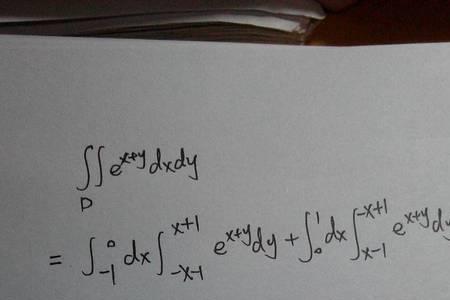 ∬_D e^{x+y} dxdy
= ∫_{-1}^{0} dx ∫_{-x-1}^{x+1} e^{x+y} dy + ∫_{0}^{1} dx ∫_{x-1}^{-x+1} e^{x+y} dy